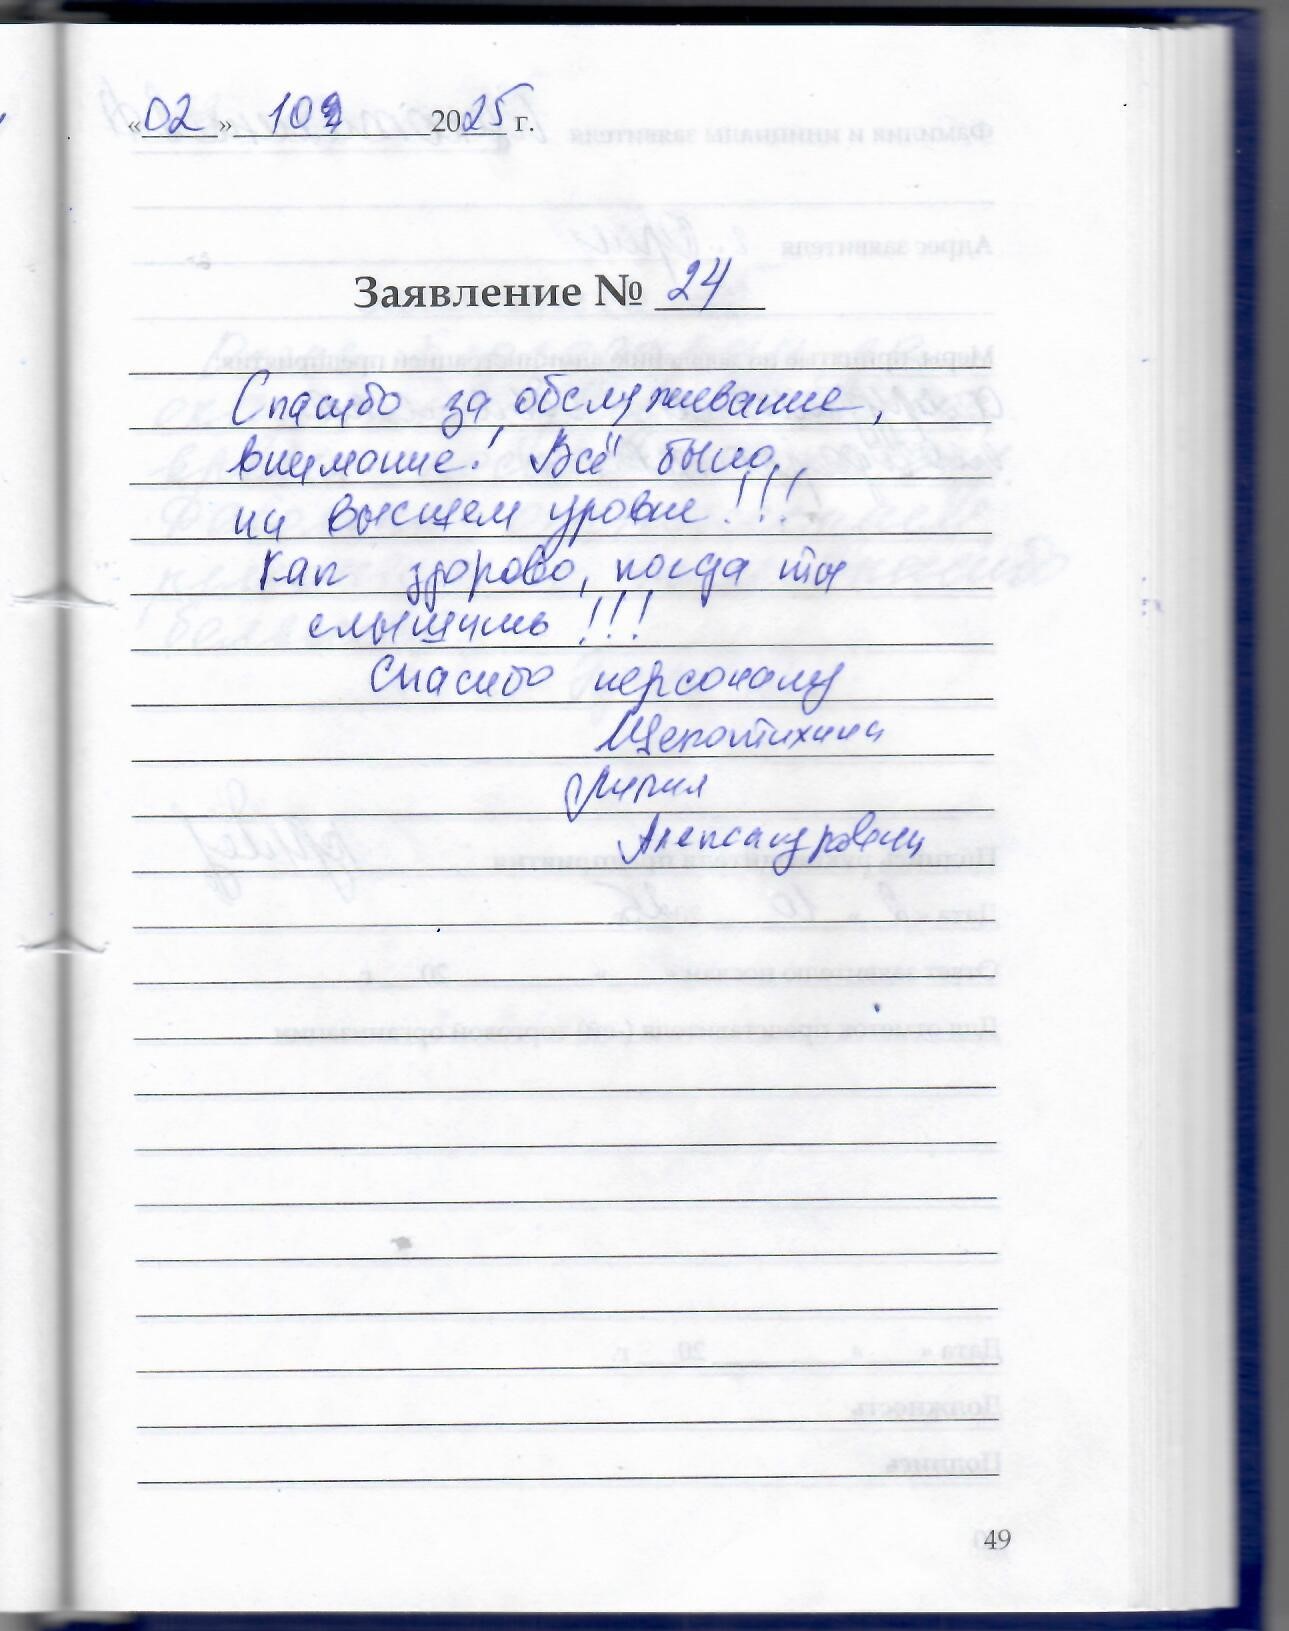 «02» 10 2025 г.
Заявление № 24
Спасибо за обслуживание,
внимание! Всё было
на высшем уровне!!!
Как здорово, когда ты
слышишь!!!
Спасибо персоналу
Щепотихина
Александровна
49